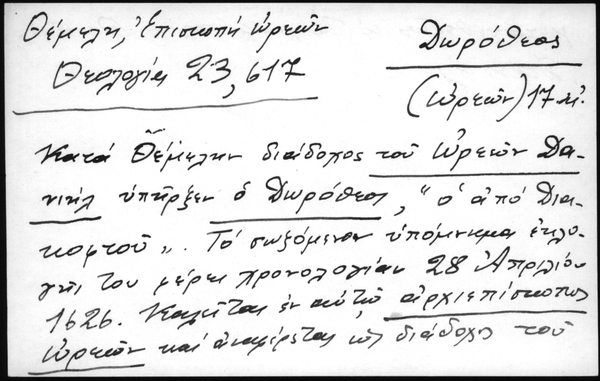 Θέμελη, Ἐπισκοπή Ὠρεῶν
Θεολογία 23, 617
Δωρόθεος
(Ὠρεῶν) 17 αἰ.
Κατά Θέμελην διάδοχος τοῦ Ὠρεῶν Δα-
νιήλ ὑπῆρξεν ὁ Δωρόθεος, "ὁ ἀπό Δια-
κοφτοῦ„. Τό σωζόμενον ὑπόμνημα ἐκλο-
γῆς του φέρει χρονολογίαν 28 Ἀπριλίου
1626. Καλεῖται ἐν αὐτῷ ἀρχιεπίσκοπος
Ὠρεῶν καί ἀναφέρεται ὡς διάδοχος τοῦ